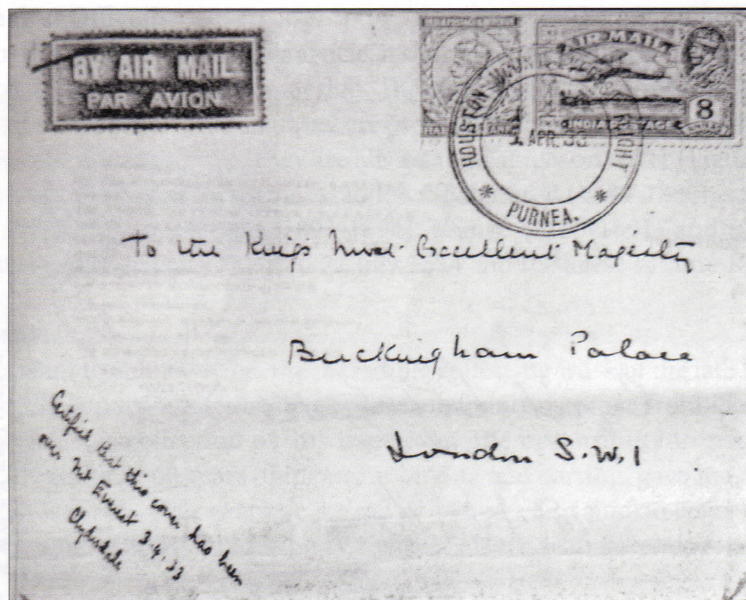 BY AIR MAIL
PAR AVION
AIR MAIL
8
INDIA POSTAGE
HOUSTON MOUNT FLIGHT
1 APR. 33
* PURNEA. *
To the King's Most Excellent Majesty
Buckingham Palace
London S.W.1
Certified that this cover has been
over Mt Everest 3.4.33
Clydesdale